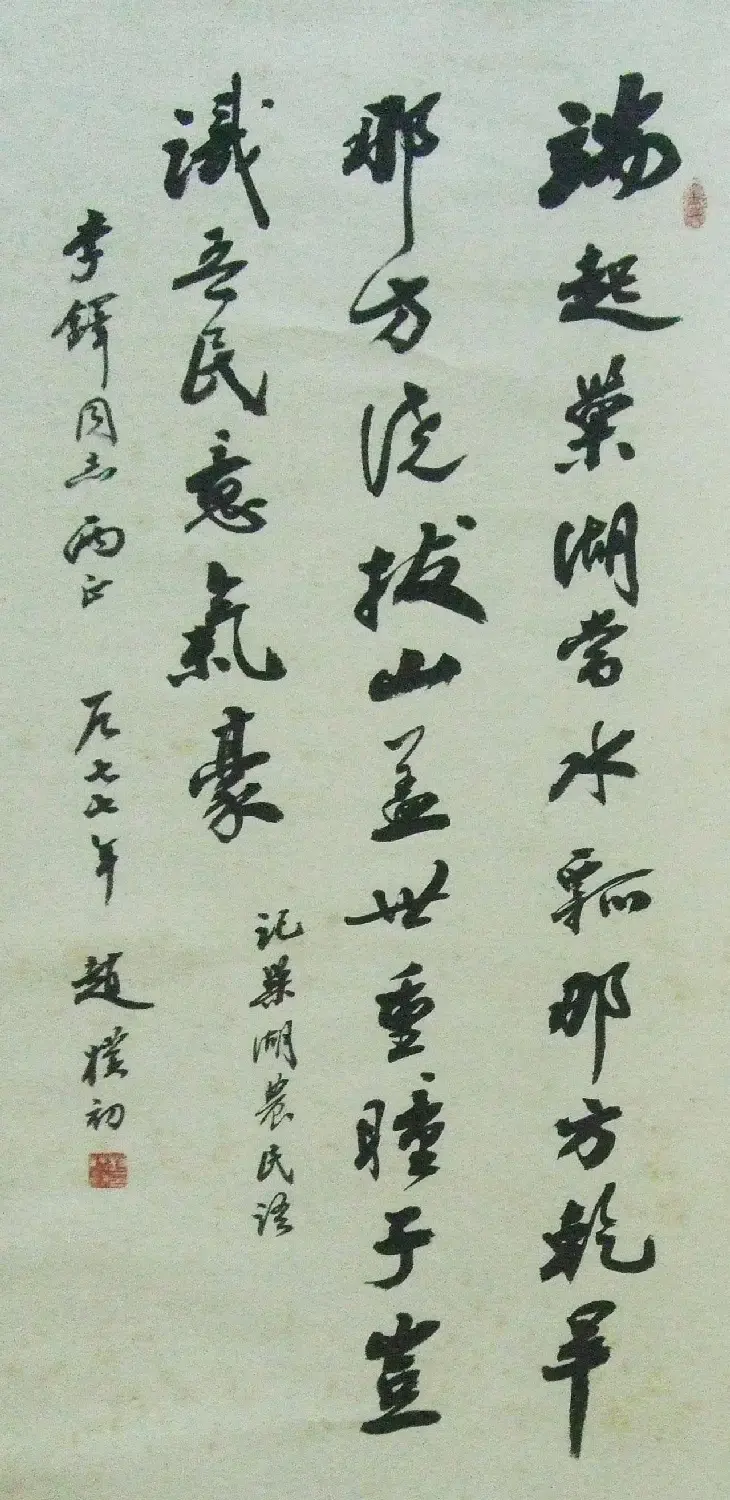 端起巢湖當水瓢那方乾旱
那方澆拔山蓋世重瞳子豈
識吾民意氣豪
記巢湖農民語
李鐸同志兩正 一九七七年 趙樸初